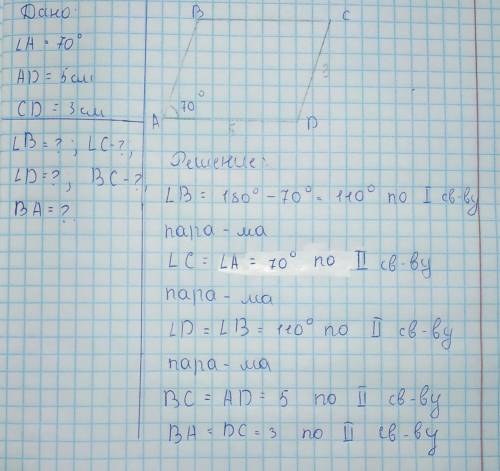 Дано:
∠A = 70°
AD = 5 см
CD = 3 см
∠B = ?; ∠C - ?,
∠D = ?, BC - ?,
BA = ?
B C
3
70°
A 5 D
Решение:
∠B = 180° - 70° = 110° по I св-ву
пара-ма
∠C = ∠A = 70° по II св-ву
пара-ма
∠D = ∠B = 110° по II св-ву
пара-ма
BC = AD = 5 по II св-ву
BA = DC = 3 по II св-ву